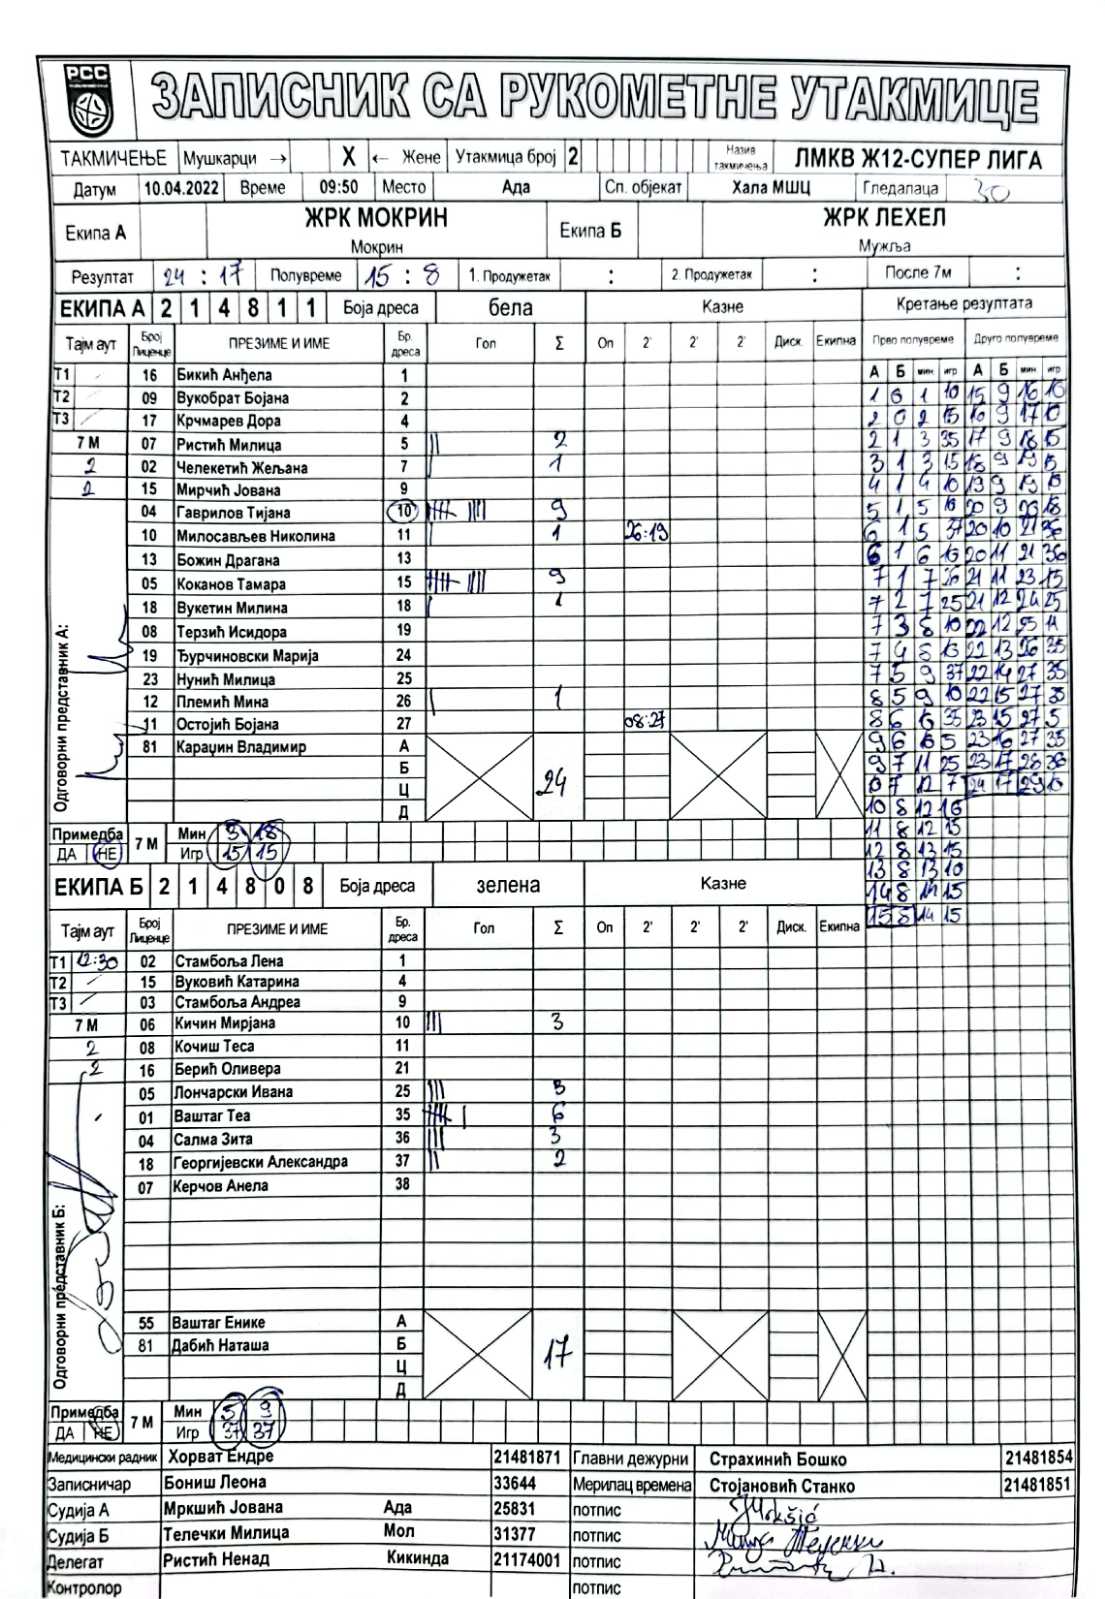 РСС
ЗАПИСНИК СА РУКОМЕТНЕ УТАКМИЦЕ
ТАКМИЧЕЊЕ Мушкарци → X ← Жене Утакмица број 2 Назив такмичења ЛМКВ Ж12-СУПЕР ЛИГА
Датум 10.04.2022 Време 09:50 Место Ада Сп. објекат Хала МШЦ Гледалаца 30
Екипа А ЖРК МОКРИН Екипа Б ЖРК ЛЕХЕЛ
Мокрин Мужља
Резултат 24 : 17 Полувреме 15 : 8 1. Продужетак : 2. Продужетак : После 7м :
ЕКИПА А 2 1 4 8 1 1 Боја дреса бела Казне Кретање резултата
Тајм аут Број Лиценце ПРЕЗИМЕ И ИМЕ Бр. дреса Гол Σ Оп 2' 2' 2' Диск. Екипна Прво полувреме Друго полувреме
А Б мин игр А Б мин игр
Т1 16 Бикић Анђела 1
1 0 1 10 15 9 16 10
Т2 09 Вукобрат Бојана 2
2 0 2 15 16 9 17 10
Т3 17 Крчмарев Дора 4
2 1 3 35 17 9 18 15
7 М 07 Ристић Милица 5 2
3 1 3 15 18 9 19 15
2 02 Челекетић Жељана 7 1
4 1 4 10 19 9 19 10
2 15 Мирчић Јована 9
5 1 5 10 20 9 20 18
04 Гаврилов Тијана 10 9
6 1 5 37 20 10 21 36
10 Милосављев Николина 11 1 26:19
6 1 6 10 20 11 21 36
13 Божин Драгана 13
7 1 7 26 21 11 23 15
05 Коканов Тамара 15 9
7 2 7 25 21 12 24 25
18 Вукетин Милина 18 1
7 3 8 10 22 12 25 11
08 Терзић Исидора 19
7 4 8 10 22 13 26 35
19 Ђурчиновски Марија 24
7 5 9 37 22 14 27 35
23 Нунић Милица 25
8 5 9 10 22 15 27 35
12 Племић Мина 26 1
8 6 10 35 23 15 27 5
11 Остојић Бојана 27 08:27
9 6 10 5 23 16 27 35
81 Караџин Владимир А
9 7 11 25 23 17 28 36
Б
10 7 12 7 24 17 29 10
Ц 24
10 8 12 16
Д
11 8 12 15
Одговорни представник А:
Примедба 7 М Мин 3 18
12 8 13 15
ДА НЕ Игр 15 15
13 8 13 10
14 8 14 15
15 8 14 15
ЕКИПА Б 2 1 4 8 0 8 Боја дреса зелена Казне
Тајм аут Број Лиценце ПРЕЗИМЕ И ИМЕ Бр. дреса Гол Σ Оп 2' 2' 2' Диск. Екипна
Т1 12:30 02 Стамбоља Лена 1
Т2 15 Вуковић Катарина 4
Т3 03 Стамбоља Андреа 9
7 М 06 Кичин Мирјана 10 3
2 08 Кочиш Теса 11
2 16 Берић Оливера 21
05 Лончарски Ивана 25 3
01 Ваштаг Теа 35 6
04 Салма Зита 36 3
18 Георгијевски Александра 37 2
07 Керчов Анела 38
Одговорни представник Б:
55 Ваштаг Енике А
81 Дабић Наташа Б 17
Ц
Д
Примедба 7 М Мин 5 9
ДА НЕ Игр 37 37
Медицински радник Хорват Ендре 21481871 Главни дежурни Страхинић Бошко 21481854
Записничар Бониш Леона 33644 Мерилац времена Стојановић Станко 21481851
Судија А Мркшић Јована Ада 25831 потпис
Судија Б Телечки Милица Мол 31377 потпис
Делегат Ристић Ненад Кикинда 21174001 потпис
Контролор потпис